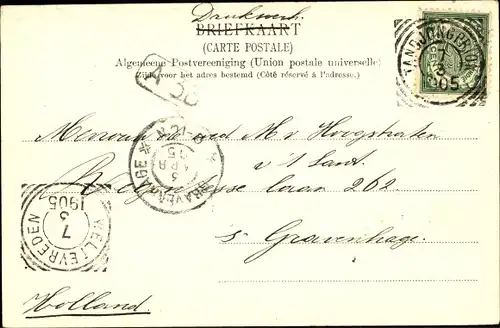 Drukwerk.
BRIEFKAART
(CARTE POSTALE)
Algemeene Postvereeniging (Union postale universelle)
Zijde voor het adres bestemd (Côté réservé à l'adresse.)
TANDJONGPRIOK
7
3
905
Mevrouw de wed M. v Hoogstraten
v. 't Sant.
laan 262
's Gravenhage.
Holland.
GRAVENHAGE
6
APR
05
WELTEVREDEN
7
3
1905